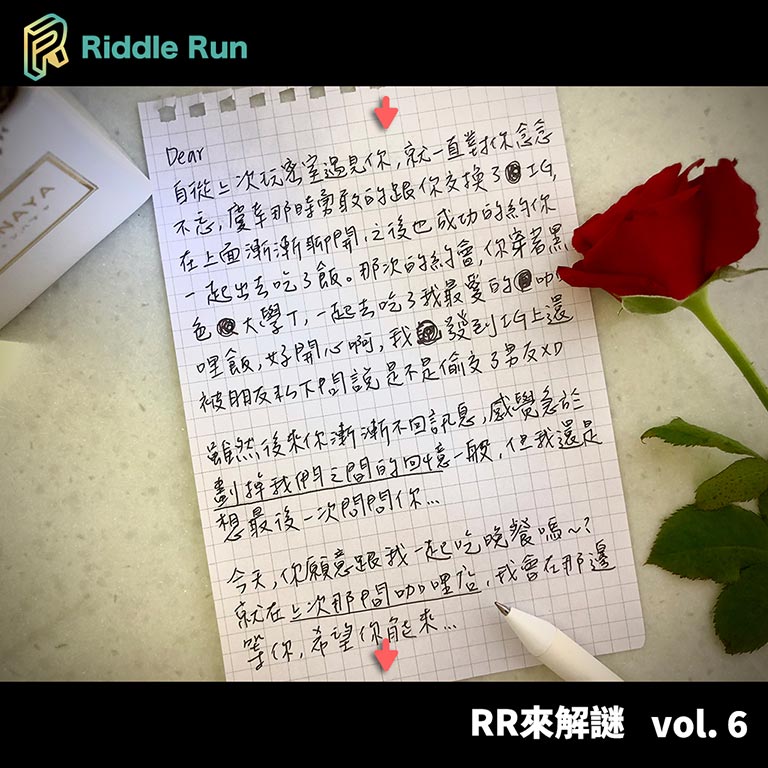 Riddle Run
NAYA
Dear
自從上次玩密室遇見你，就一直對你念念
不忘，慶幸那時勇敢的跟你交換了IG，
在上面漸漸聊開，之後也成功的約你
一起出去吃了飯。那次的約會，你穿著黑
色大學T，一起去吃了我最愛的咖
哩飯，好開心啊，我發到IG上還
被朋友私下問說是不是偷交了男友XD
雖然後來你漸漸不回訊息，感覺急於
劃掉我們之間的回憶一般，但我還是
想最後一次問問你...
今天，你願意跟我一起吃晚餐嗎～?
就在上次那間咖哩店，我會在那邊
等你，希望你能來...
RR來解謎 vol. 6